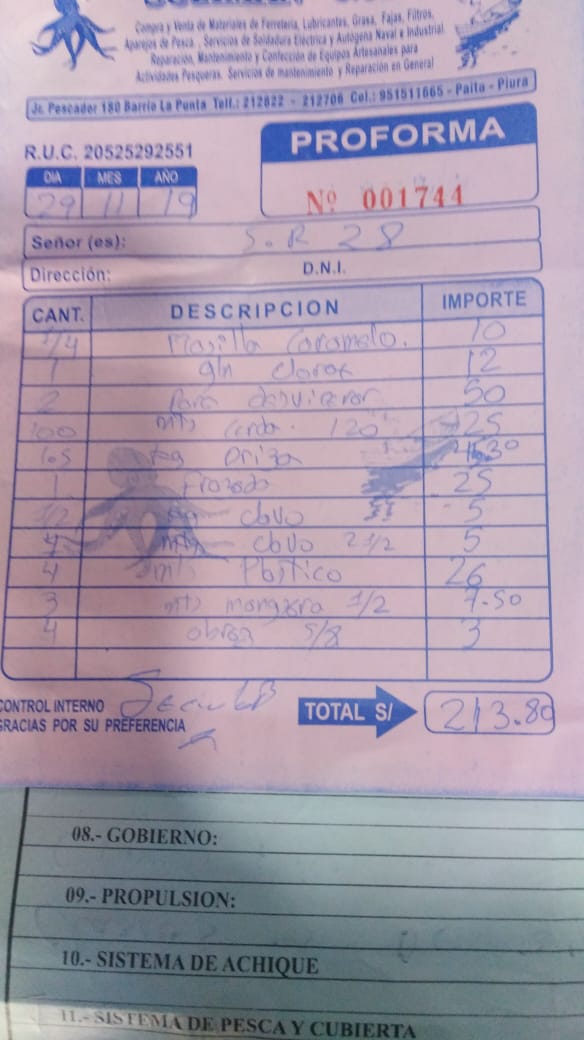 Compra y Venta de Materiales de Ferreteria, Lubricantes, Grasa, Fajas, Filtros,
Aparejos de Pesca, Servicios de Soldadura Eléctrica y Autógena Naval e Industrial
Reparación, Mantenimiento y Confección de Equipos Artesanales para
Actividades Pesqueras. Servicios de mantenimiento y Reparación en General
Jr. Pescador 180 Barrio La Punta Telf.: 212822 - 212706 Cel.: 951511665 - Paita - Piura
R.U.C. 20525292551
PROFORMA
DIA MES AÑO
29 11 19
Nº 001744
Señor (es): S.R 28
Dirección: D.N.I.
CANT. DESCRIPCION IMPORTE
1/4 Masilla Caramelo. 10
1 gln 12
2 Para 50
100 mts 120 25
Driza
1 Frozada 25
1/2 clavo 5
clavo 2 1/2 5
4 mts Plastico 26
3 mts manguera 1/2 7.50
4 5/8 3
CONTROL INTERNO
GRACIAS POR SU PREFERENCIA
TOTAL S/ 213.80
08.- GOBIERNO:
09.- PROPULSION:
10.- SISTEMA DE ACHIQUE
11.- SISTEMA DE PESCA Y CUBIERTA